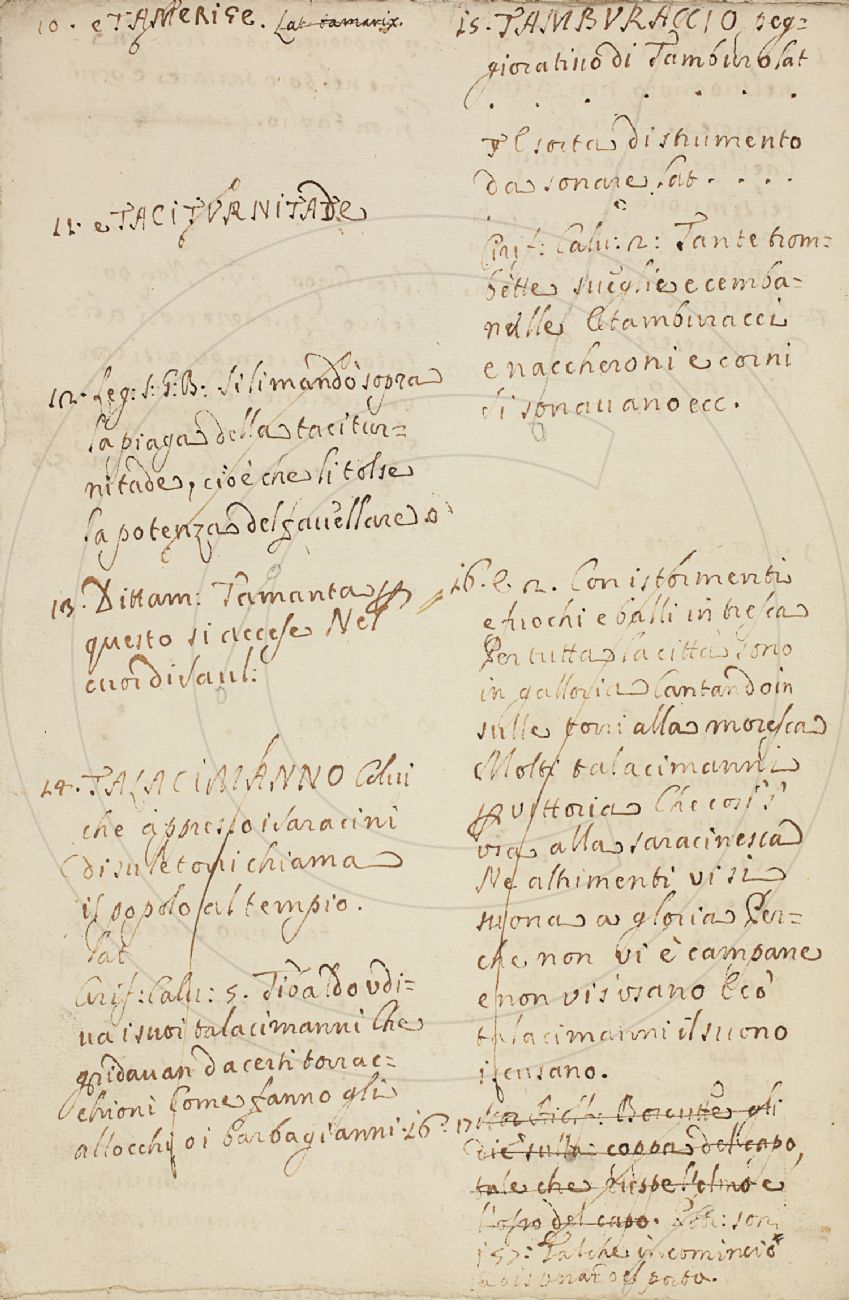 10. e TAMERIGE. Lat. tamarix.
11. e TACITVRNITADE
12. Leg: S: G: B: Si li mandò sopra
la piaga della tacitur=
nitade, cioè che li tolse
la potenza del favellare
13. Dittam: Tamanta
questo si accese Nel
cuor di Saul:
14. TALACIMANNO Colui
che appresso i Saracini
di su le torri chiama
il popolo al tempio.
Lat
Cirif: Calu: 5. Tibaldo vdi=
ua i suoi talacimanni Che
gridauan da certi torrac=
chioni Come fanno gli
allocchi o i barbagianni. 16.
15. TAMBVRACCIO peg=
giorativo di Tamburo Lat
. . . . . .
sorta di strumento
da sonare Lat . . . .
Cirif: Calu: 2: Tante trom=
bette sueglie e cemba=
nelle E tamburacci
e naccheroni e corni
si sonauano ecc.
16. E 2. Con istormenti
e fuochi e balli in tresca
Per tutta la città sono
in galloria Cantando in
sulle torri alla moresca
Molti talacimanni
vittoria Che così s'
vsa alla saracinesca
Ne altrimenti vi si
suona a gloria Per=
che non vi è campane
e non vi s'vsano E co
talacimanni il suono
iscusano.
17. gli
diè sulla coppa del capo,
tale che l'elmo e
l'osso del capo. son.
157: Talche incominciò